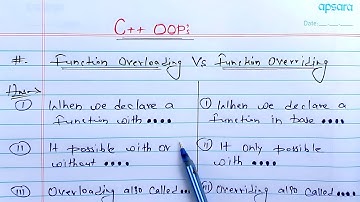 apsara
Date:
C++ OOPs
#. Function Overloading Vs Function Overriding
Ans:
(i) When we declare a
function with ....
(ii) It possible with or
without ....
(iii) Overloading also called....
(i) When we declare a
function in base ....
(ii) It only possible
with ....
(iii) Overriding also called....